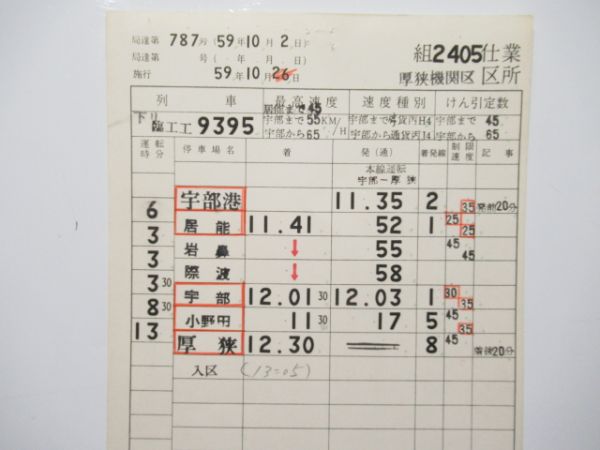 局達第 787号 (59年10月2日)
局達第 号( 年 月 日)
施行 59年10月26日
組2405仕業
厚狭機関区 区所
列車 最高速度 速度種別 けん引定数
下り
臨工工9395
居能まで45
宇部まで55KM/H
宇部から65
宇部まで 貨丙H4
宇部から通貨丙J4
宇部まで 45
宇部から 65
運転時分 停車場名 着 発(通) 着発線 制限速度 記事
本線運転
宇部~厚狭
宇部港 11.35 2 35 発前20分
6
居能 11.41 52 1 25 25
3
岩鼻 ↓ 55 45 45
3
際波 ↓ 58
3 30
宇部 12.01 30 12.03 1 30 35
8 30
小野田 11 30 17 5 45 35
13
厚狭 12.30 8 45 着後20分
入区 (13=05)